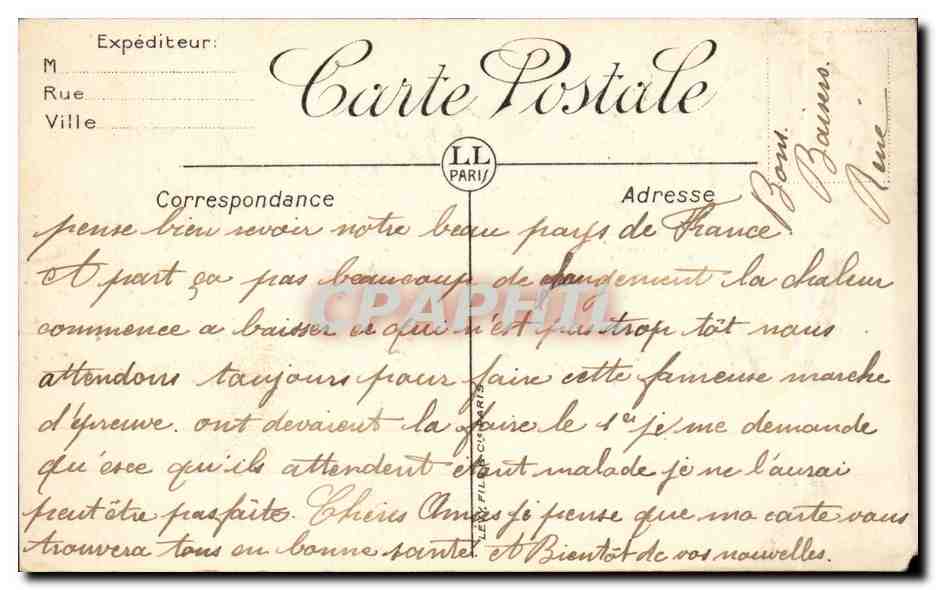 Expéditeur:
M
Rue
Ville
Carte Postale
LL
PARIS
Correspondance
Adresse
pense bien revoir notre beau pays de France.
A part ça pas beaucoup de changement la chaleur
commence a baisser ce qui n'est pas trop tôt nous
attendons toujours pour faire cette fameuse marche
d'épreuve. ont devaient la faire le 1er je me demande
qu'esce qu'ils attendent étant malade je ne l'aurai
peut être pas faite. Chères Amies je pense que ma carte vous
trouvera tous en bonne santé. A Bientôt de vos nouvelles.
Bons.
Baisers.
René
LEVY FILS & Cie PARIS
CPAPHIL